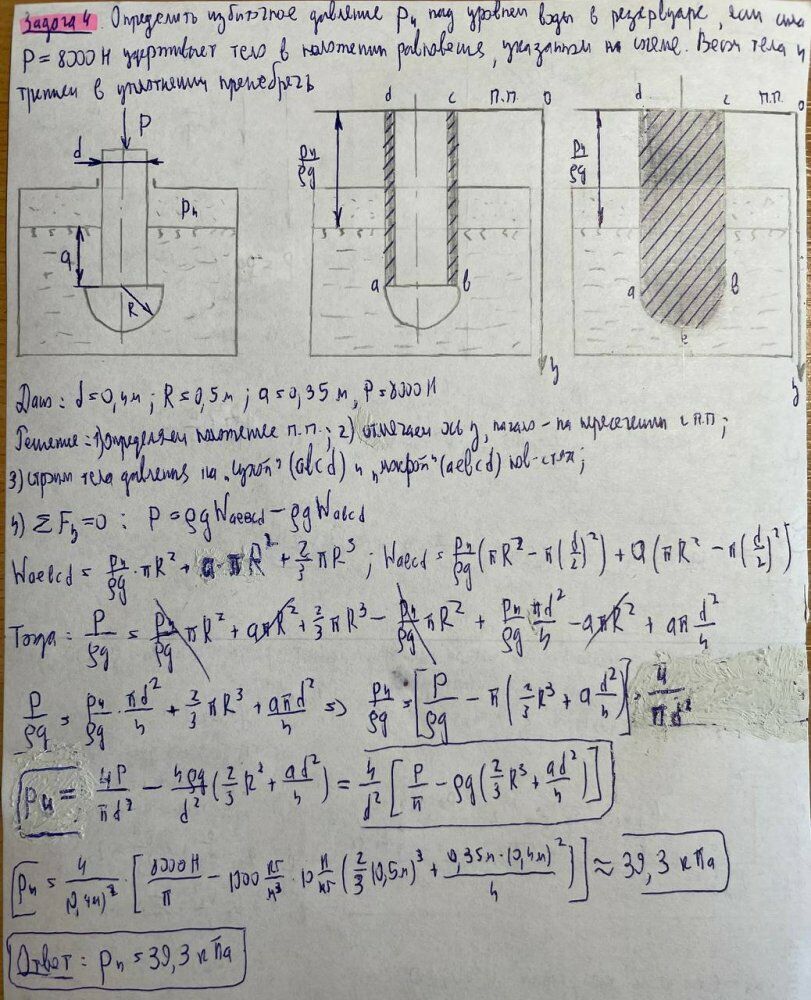 Задача 4 Определить избыточное давление Pи над уровнем воды в резервуаре, если сила
P = 8000 Н удерживает тело в положении равновесия, указанном на схеме. Весом тела и
трением в уплотнении пренебречь
P
d
Pи
a
R
d c п.п. 0
Pи/ρg
a b
z
d c п.п. 0
Pи/ρg
a b
e
z
Дано: d=0,4м; R=0,5м; a=0,35м, P=8000Н
Решение: 1) определяем положение п.п.; 2) отмечаем ось z, начало - на пересечении с п.п;
3) строим тела давления на "сухой" (abcd) и "мокрой" (aebcd) пов-стях;
4) ΣFz=0: P = ρgWaebcd − ρgWabcd
Waebcd = Pи/ρg · πR² + a·πR² + 2/3 πR³; Wabcd = Pи/ρg (πR² − π(d/2)²) + a(πR² − π(d/2)²)
Тогда: P/ρg = Pи/ρg πR² + aπR² + 2/3 πR³ − Pи/ρg πR² + Pи/ρg πd²/4 − aπR² + aπ d²/4
P/ρg = Pи/ρg · πd²/4 + 2/3 πR³ + aπd²/4 => Pи/ρg = [P/ρg − π(2/3 R³ + a d²/4)] · 4/πd²
Pи = 4P/πd² − 4ρg/d² (2/3 R³ + ad²/4) = 4/d² [P/π − ρg(2/3 R³ + ad²/4)]
Pи = 4/(0,4м)² · [8000Н/π − 1000 кг/м³ · 10 Н/кг (2/3 (0,5м)³ + 0,35м·(0,4м)²/4)] ≈ 39,3 кПа
Ответ: Pи = 39,3 кПа